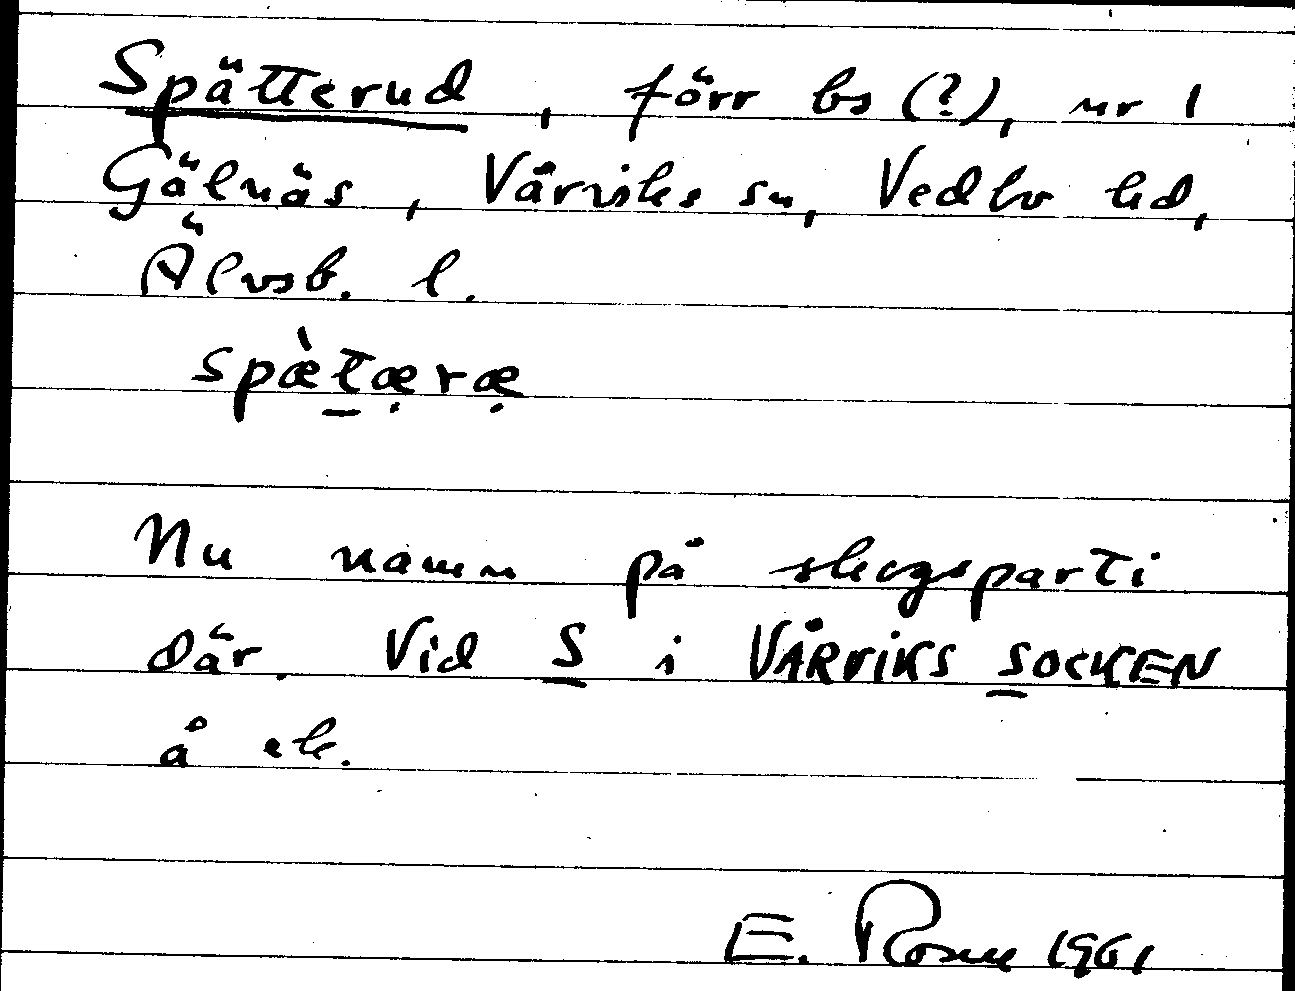 Spätterud, förr bs (?), nr 1
Gälnäs, Vårviks sn, Vedbo hd,
Älvsb. l.
spæ̀t̲æ̣ræ̣
Nu namn på skogsparti
där. Vid S i VÅRVIKS SOCKEN
å ek.
E. Rosne 1961